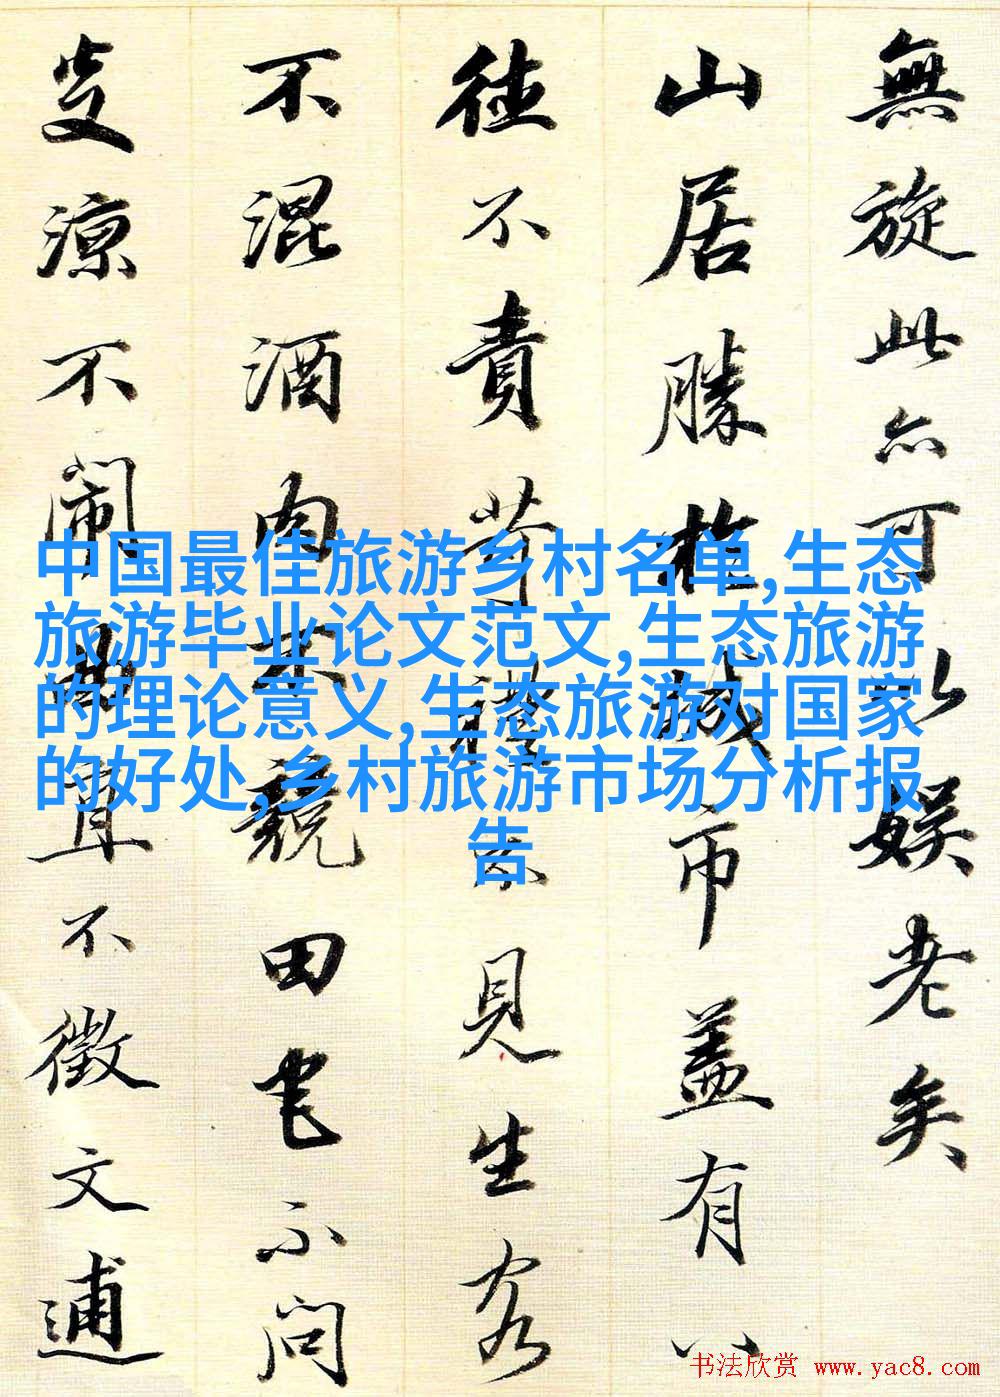 無旋此亦可以娛老矣
山居勝於城市蓋有八
德不責苛禮不見生客
不混酒肉不競田宅不問
炎涼不鬧曲直不徵文逋
中国最佳旅游乡村名单,生态
旅游毕业论文范文,生态旅游
的理论意义,生态旅游对国家
的好处,乡村旅游市场分析报
告
书法欣赏 www.yac8.com